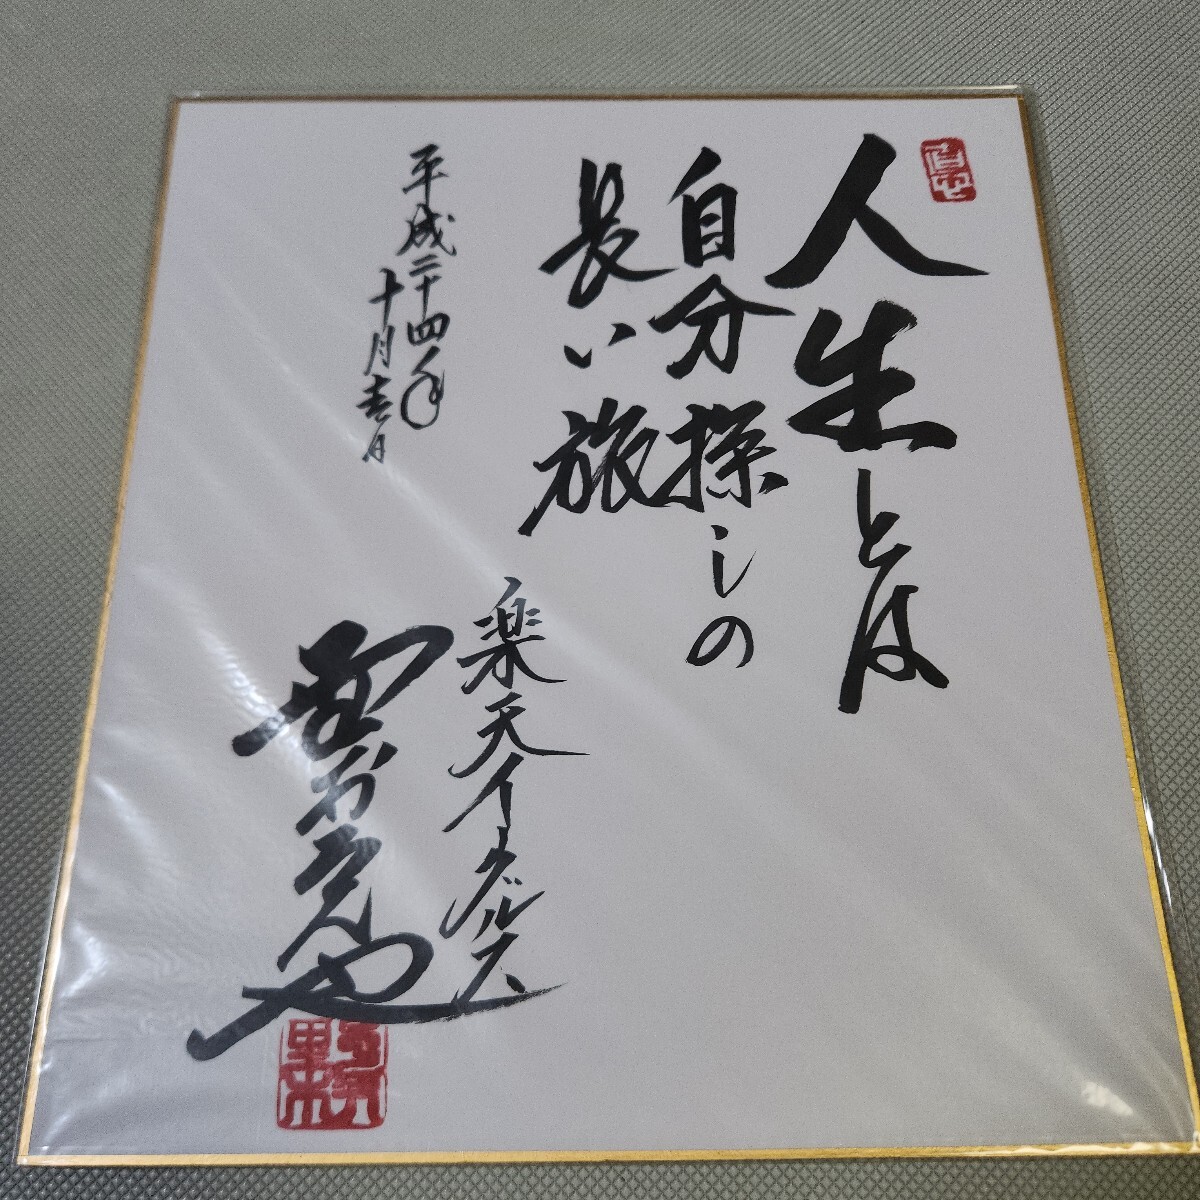 人生とは
自分探しの
長い旅
平成二十四年
十月吉日
楽天イーグルス